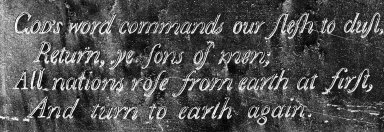 God's word commands our fleſh to duſt,
Return, ye ſons of men;
All nations roſe from earth at firſt,
And turn to earth again.